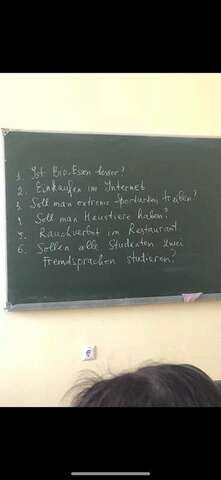 1. Ist Bio-Essen besser?
2. Einkaufen im Internet
3. Soll man extreme Sportarten treiben?
4. Soll man Haustiere haben?
5. Rauchverbot im Restaurant.
6. Sollen alle Studenten zwei
Fremdsprachen studieren?